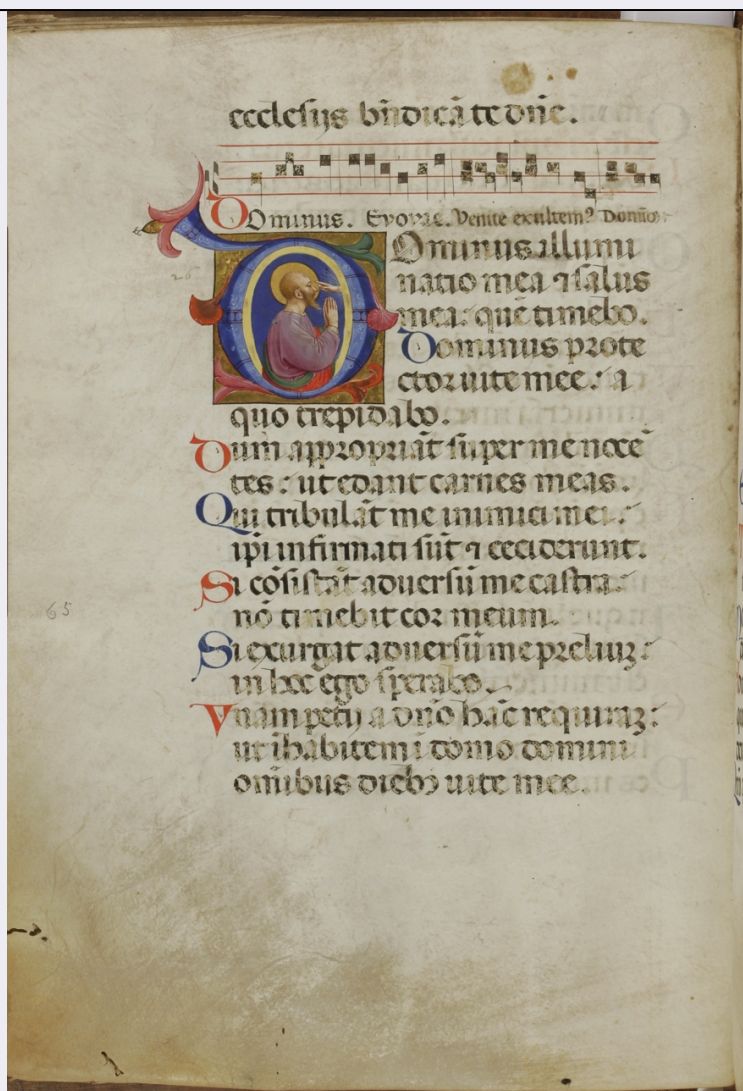 ecclesijs bn̄dicā te dn̄e.
Dominus. Evovae. Venite exultemꝰ Domīo
Dominus illumi
natio mea ⁊ salus
mea: quē timebo.
Dominus prote
ctor uite mee: a
quo trepidabo.
Dum appropriāt super me nocē
tes: ut edant carnes meas.
Qui tribulāt me inimici mei:
ipi infirmati sūt ⁊ ceciderunt.
Si cōsistāt aduersū me castra:
nō timebit cor meum.
Si exurgat aduersū me preliuꝫ:
in hoc ego sperabo.
Vnam petij a dn̄o hāc requiraꝫ:
ut īhabitem ī domo domini
omībus diebꝫ uite mee.
65